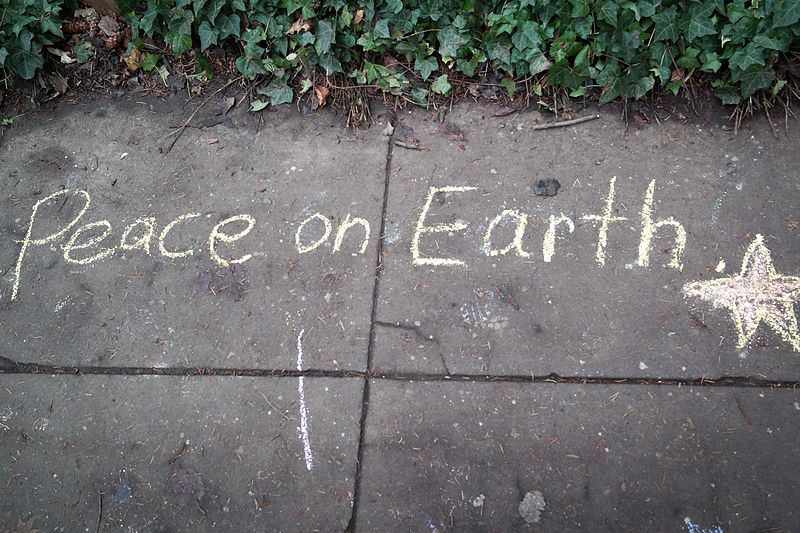 Peace on Earth